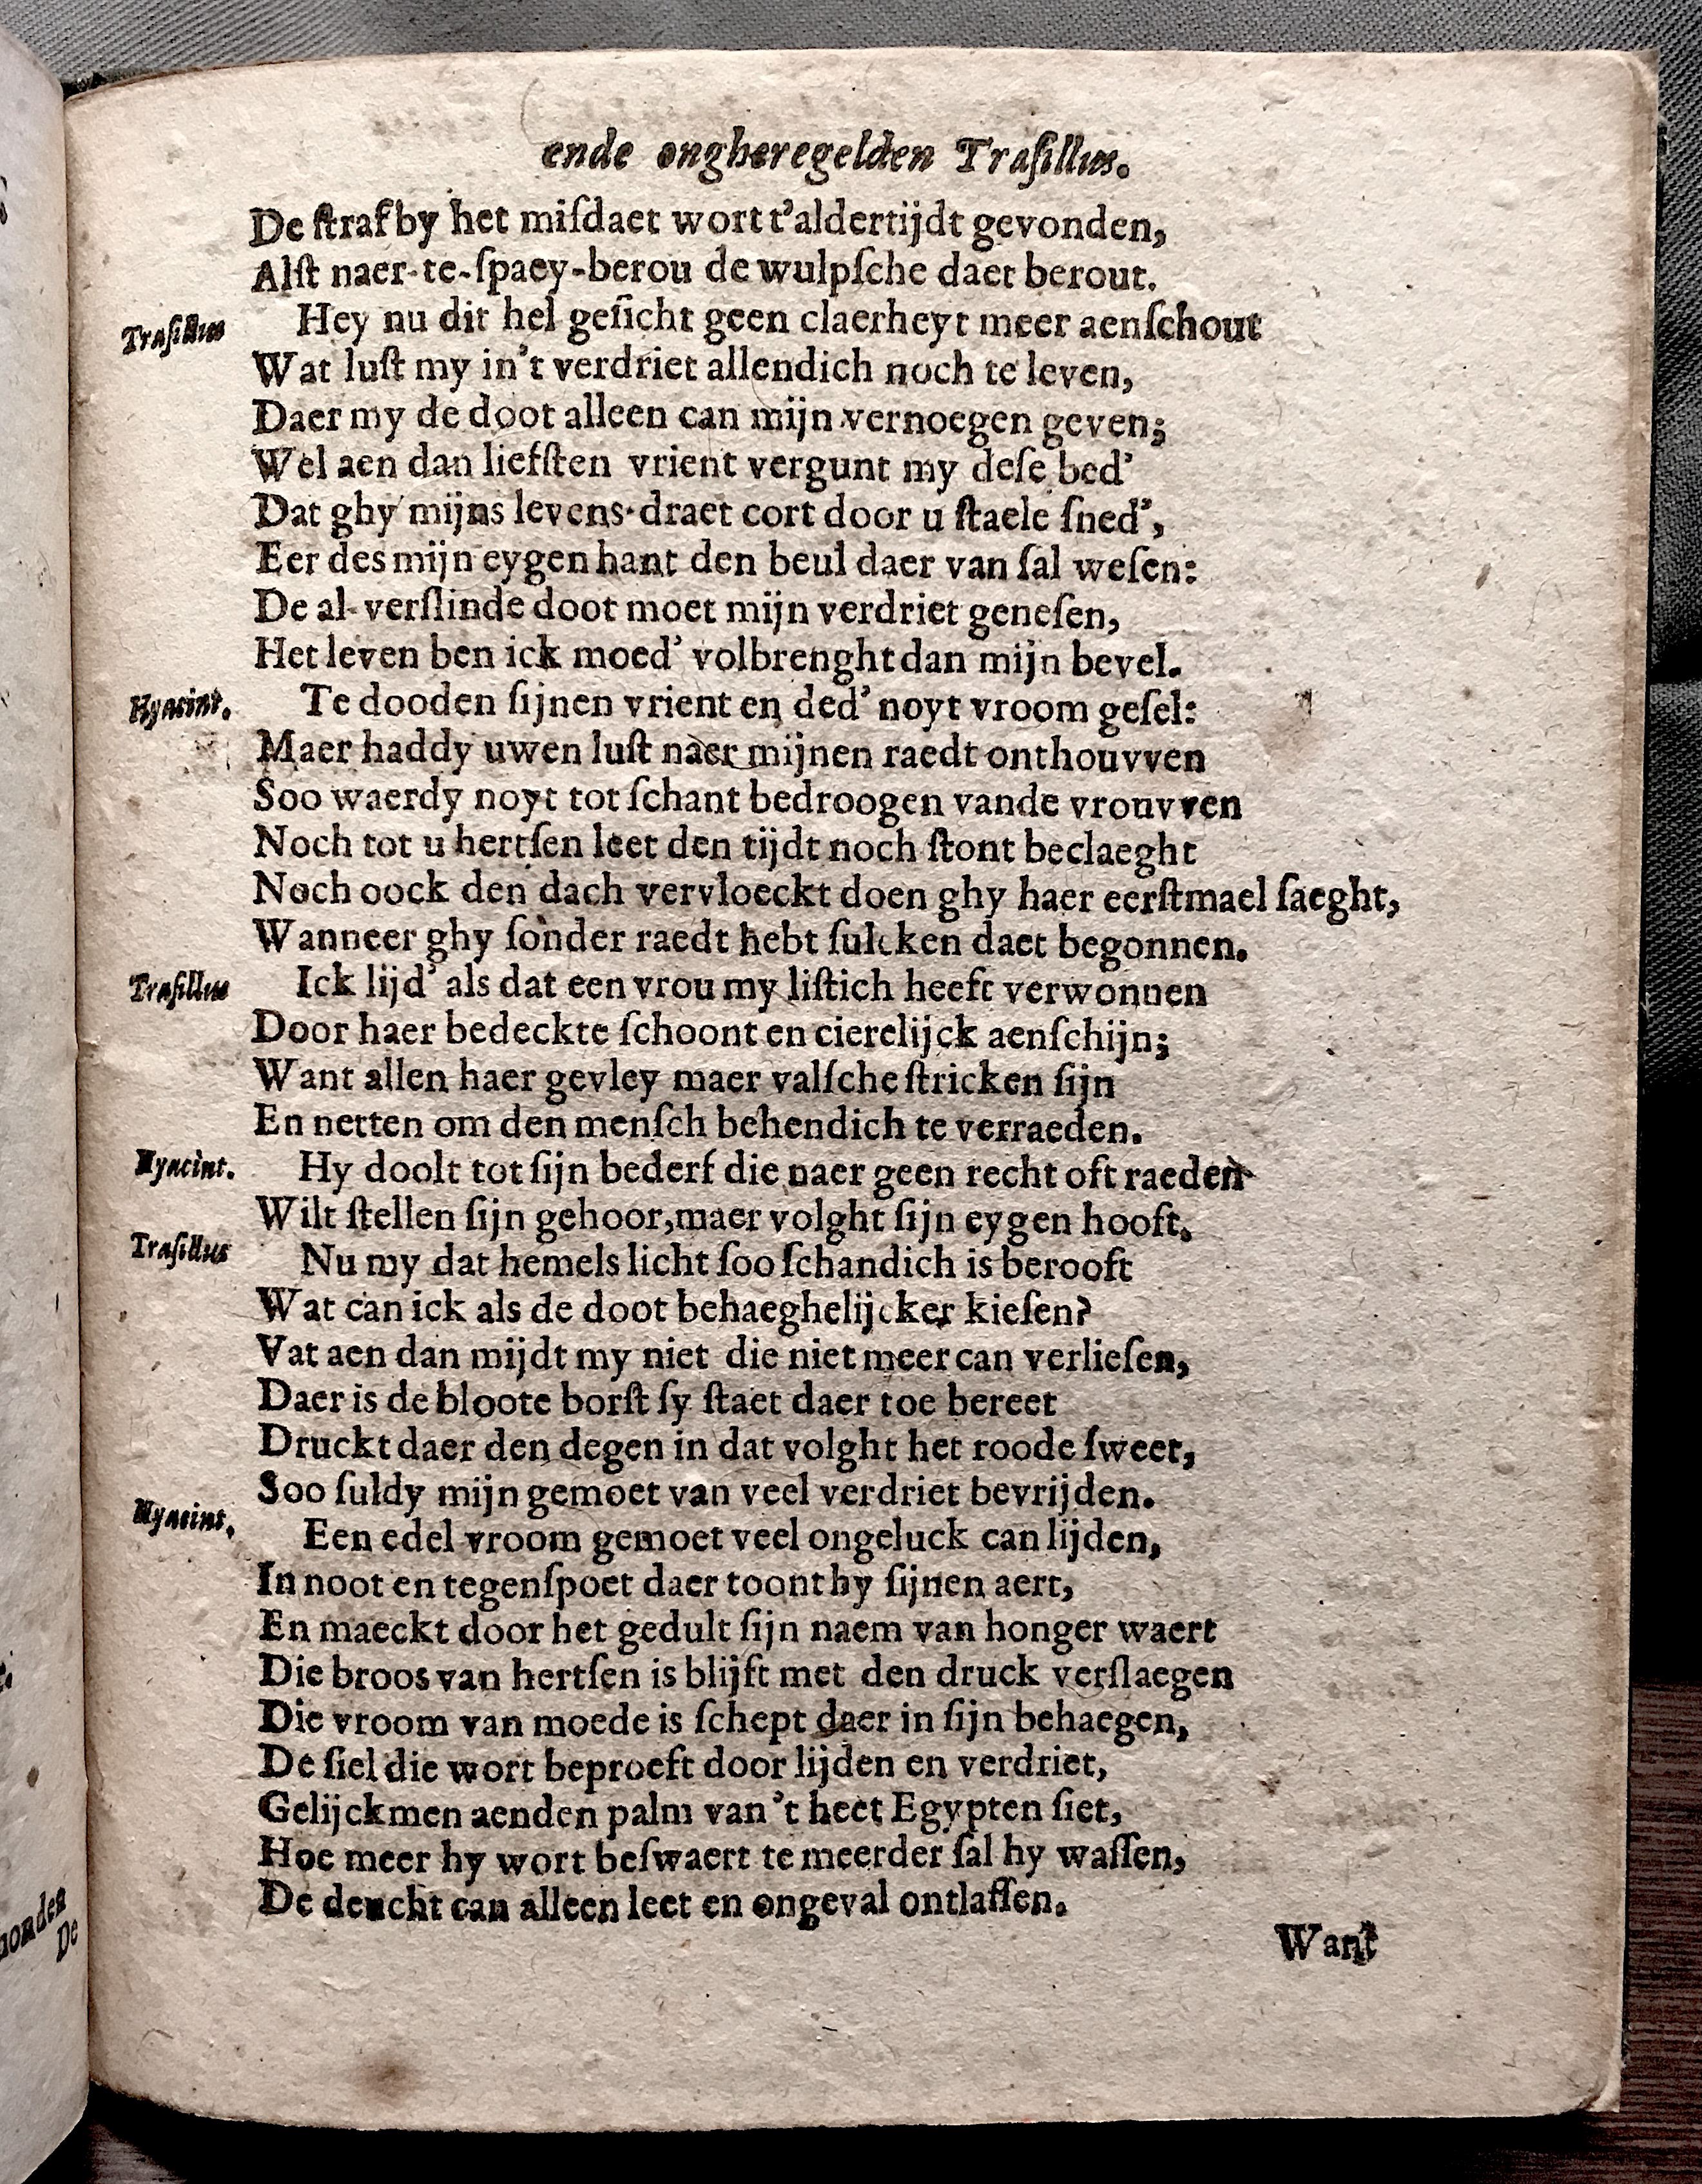 ende ongheregelden Traſillus.
De ſtraf by het miſdaet wort t'aldertijdt gevonden,
Alſt naer-te-ſpaey-berou de wulpſche daet berout.
Traſillus Hey nu dit hel geſicht geen claerheyt meer aenſchout
Wat luſt my in't verdriet allendich noch te leven,
Daer my de doot alleen can mijn vernoegen geven;
Wel aen dan liefſten vrient vergunt my deſe bed'
Dat ghy mijns levens-draet cort door u ſtaele ſned',
Eer des mijn eygen hant den beul daer van ſal weſen:
De al-verſlinde doot moet mijn verdriet geneſen,
Het leven ben ick moed' volbrenght dan mijn bevel.
Hyacint. Te dooden ſijnen vrient en ded' noyt vroom geſel:
Maer haddy uwen luſt naer mijnen raedt onthouvven
Soo waerdy noyt tot ſchant bedroogen vande vrouvven
Noch tot u hertſen leet den tijdt noch ſtont beclaeght
Noch oock den dach vervloeckt doen ghy haer eerſtmael ſaeght,
Wanneer ghy ſonder raedt hebt ſulcken daet begonnen.
Traſillus Ick lijd' als dat een vrou my liſtich heeft verwonnen
Door haer bedeckte ſchoont en cierelijck aenſchijn;
Want allen haer gevley maer valſche ſtricken ſijn
En netten om den menſch behendich te verraeden.
Hyacint. Hy doolt tot ſijn bederf die naer geen recht oft raeden
Wilt ſtellen ſijn gehoor, maer volght ſijn eygen hooft.
Traſillus Nu my dat hemels licht ſoo ſchandich is berooft
Wat can ick als de doot behaeghelijcker kieſen?
Vat aen dan mijdt my niet die niet meer can verlieſen,
Daer is de bloote borſt ſy ſtaet daer toe bereet
Druckt daer den degen in dat volght het roode ſweet,
Soo ſuldy mijn gemoet van veel verdriet bevrijden.
Hyacint. Een edel vroom gemoet veel ongeluck can lijden,
In noot en tegenſpoet daer toont hy ſijnen aert,
En maeckt door het gedult ſijn naem van honger waert
Die broos van hertſen is blijft met den druck verſlaegen
Die vroom van moede is ſchept daer in ſijn behaegen,
De ſiel die wort beproeft door lijden en verdriet,
Gelijckmen aenden palm van't heet Egypten ſiet,
Hoe meer hy wort beſwaert te meerder ſal hy waſſen,
De deucht can alleen leet en ongeval ontlaſſen.
Want